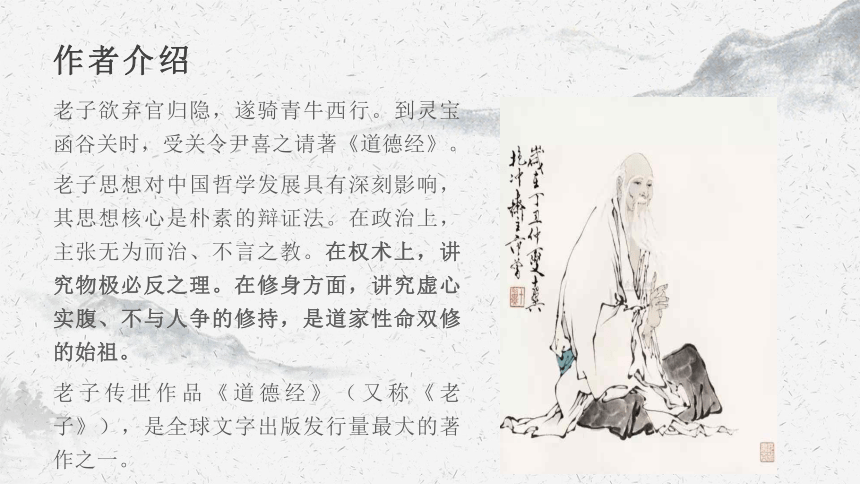 作者介绍
老子欲弃官归隐，遂骑青牛西行。到灵宝
函谷关时，受关令尹喜之请著《道德经》。
老子思想对中国哲学发展具有深刻影响，
其思想核心是朴素的辩证法。在政治上，
主张无为而治、不言之教。在权术上，讲
究物极必反之理。在修身方面，讲究虚心
实腹、不与人争的修持，是道家性命双修
的始祖。
老子传世作品《道德经》（又称《老
子》），是全球文字出版发行量最大的著
作之一。
歲在丁丑仲夏十翼
抱冲齋主范曾